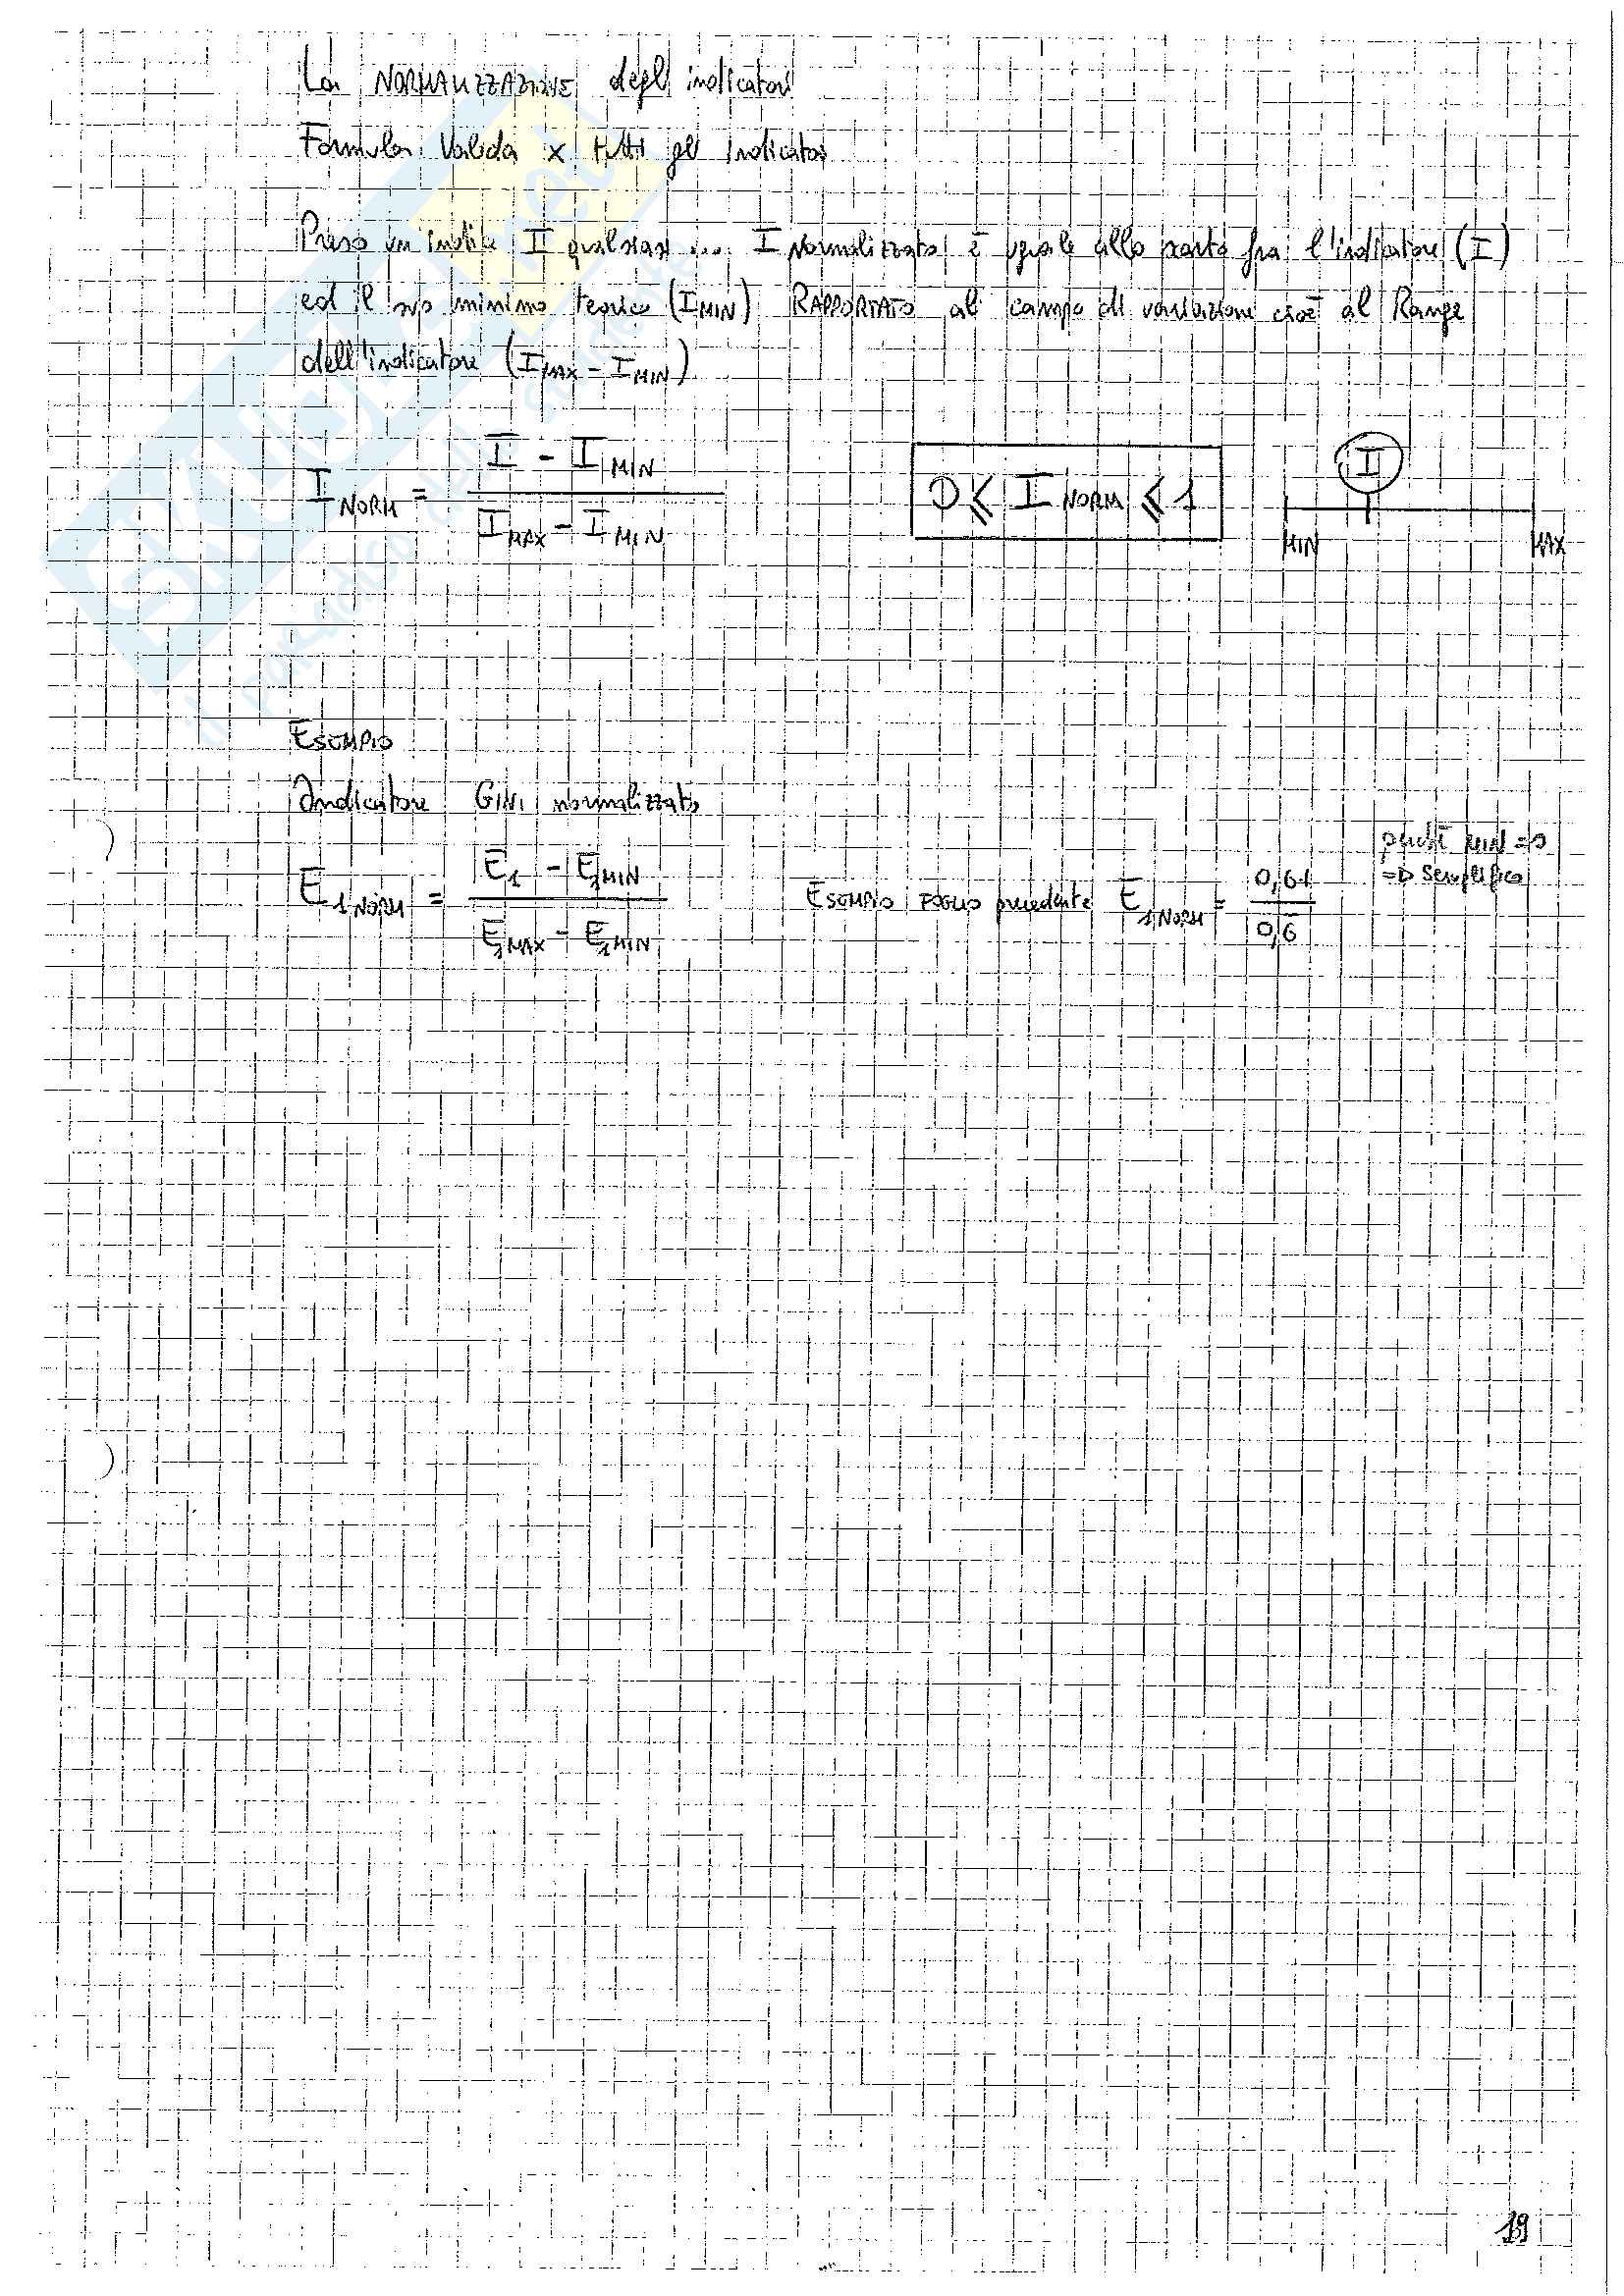 La NORMALIZZAZIONE degli indicatori
Formula Valida x tutti gli indicatori
Preso un indice I qualsiasi ... I Normalizzato è uguale allo scarto fra l'indicatore (I)
ed il suo minimo teorico (I MIN) RAPPORTATO al campo di variazione cioè al Range
dell'indicatore (I MAX - I MIN)
I NORM = (I - I MIN) / (I MAX - I MIN)
0 ≤ I NORM ≤ 1
I
MIN MAX
ESEMPIO
Indicatore GINI normalizzato
E1 NORM = (E1 - E1 MIN) / (E1 MAX - E1 MIN)
ESEMPIO FOGLIO precedente E1 NORM = 0,61 / 0,6
perché MIN = 0
=D Semplifico
19